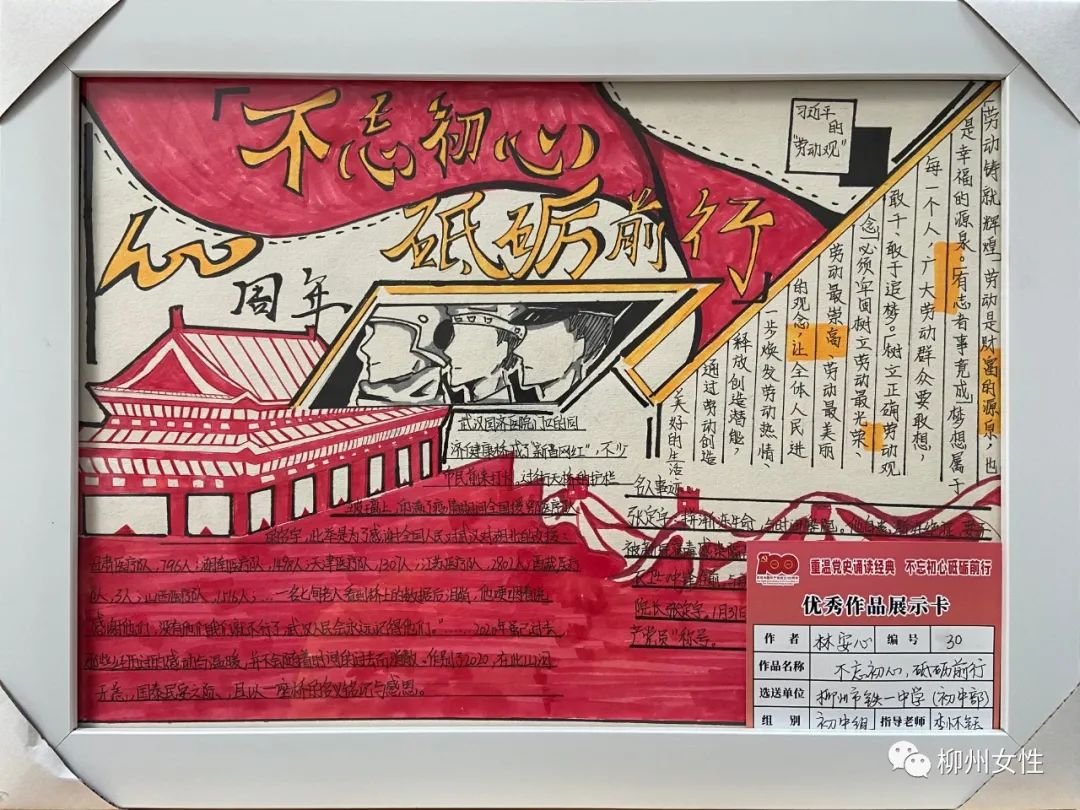 「不忘初心
砥砺前行」
100
周年
习近平
的
"劳动观"
"劳动铸就辉煌"劳动是财富的源泉,也
是幸福的源泉。有志者事竟成,梦想属于
每一个人,广大劳动群众要敢想、
敢干、敢于追梦。"树立正确劳动观
念,必须牢固树立劳动最光荣、
劳动最崇高、劳动最美丽
的观念,让全体人民进
一步焕发劳动热情、
释放创造潜能,
通过劳动创造
美好的生活
武汉同济医院门口的同
济健康桥成了"新晋网红",不少
市民前来打卡。过街天桥的护栏
此举是为了感谢全国人民对武汉对湖北的支援:
甘肃医疗队,796人;湖南医疗队,1498人;天津医疗队,1307人;江苏医疗队,2802人;西藏医疗
队,3人;山西医疗队,1516人;...
感谢他们,没有他们我们就不行了,武汉人民会永远记得他们。"......2020年虽已过去
那些经历过的感动与温暖,并不会随着时间的过去而消散。作别了2020,在此山河
无恙,国泰民安之际、且以一座桥的名义铭怀与感恩。
名人事迹
张定宇:拼渐冻生命
院长张定宇。1月31日
产党员"称号。
100
重温党史诵读经典 不忘初心砥砺前行
优秀作品展示卡
作 者 林安心 编 号 30
作品名称 不忘初心,砥砺前行
选送单位 柳州市铁一中学(初中部)
组 别 初中组 指导老师
柳州女性